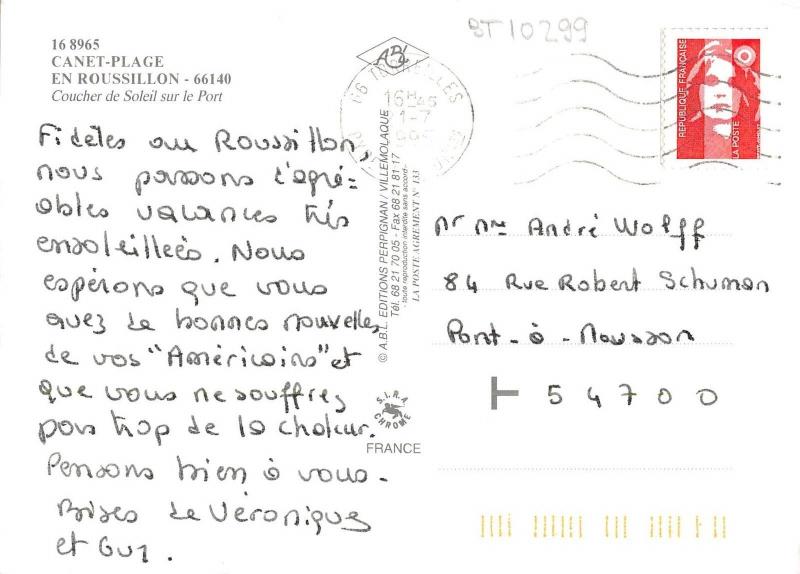 BT10299
16 8965
CANET-PLAGE
EN ROUSSILLON - 66140
Coucher de Soleil sur le Port
ABL
16H45
REPUBLIQUE FRANÇAISE
LA POSTE
Fidèles au Roussillon,
nous passons d'agré-
ables vacances très
ensoleillées. Nous
espérons que vous
avez de bonnes nouvelles
de vos "Américains" et
que vous ne souffrez
pas trop de la chaleur.
Pensons bien à vous.
Bises de Véronique
et Guy.
© A.B.L. EDITIONS PERPIGNAN / VILLEMOLAQUE
Tél. 68 21 70 05 - Fax 68 21 81 17
- toute reproduction interdite sans accord -
LA POSTE AGREMENT N° 133
S.I.R.A.
CHROME
FRANCE
Mr Mme André Wolff
84 Rue Robert Schuman
Pont-à-Mousson
54700